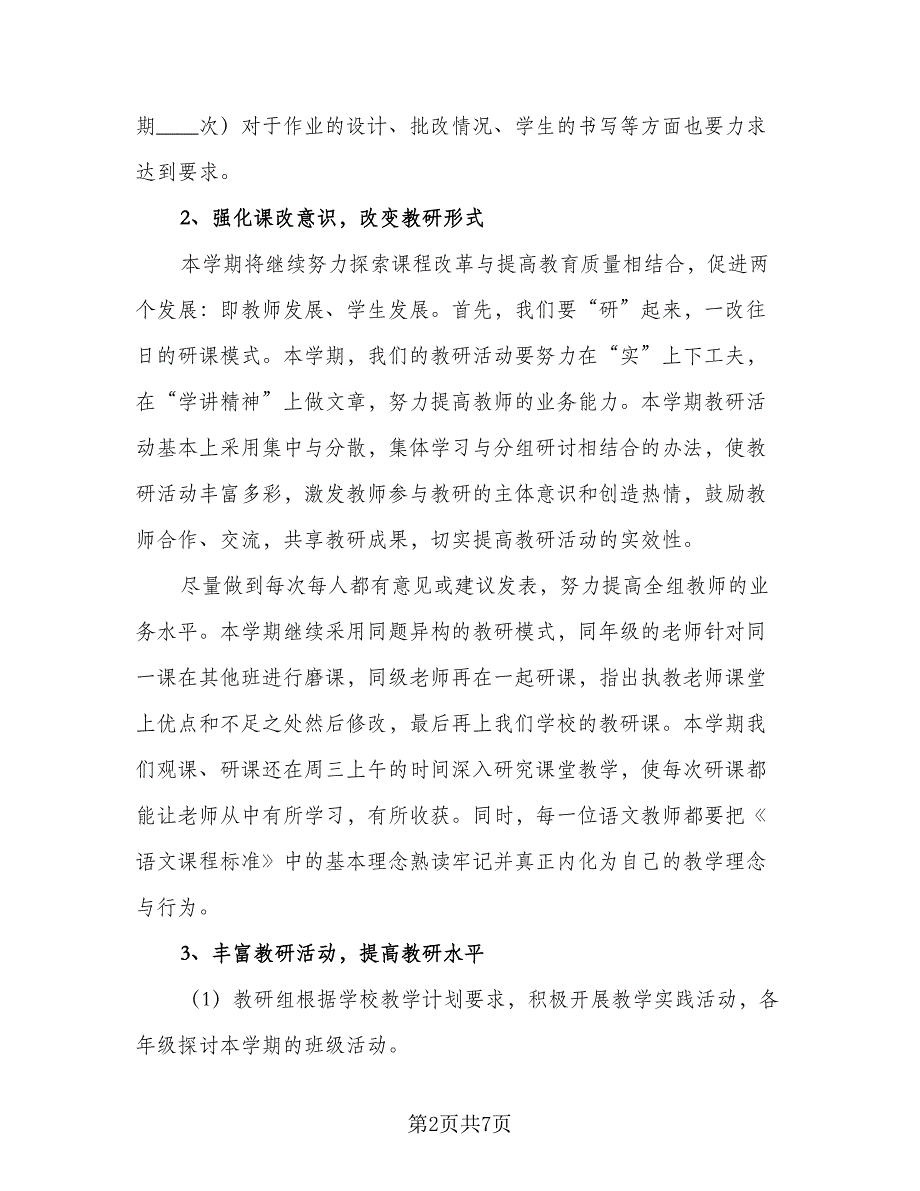 期____次）对于作业的设计、批改情况、学生的书写等方面也要力求
达到要求。
2、强化课改意识，改变教研形式
本学期将继续努力探索课程改革与提高教育质量相结合，促进两
个发展：即教师发展、学生发展。首先，我们要“研”起来，一改往
日的研课模式。本学期，我们的教研活动要努力在“实”上下工夫，
在“学讲精神”上做文章，努力提高教师的业务能力。本学期教研活
动基本上采用集中与分散，集体学习与分组研讨相结合的办法，使教
研活动丰富多彩，激发教师参与教研的主体意识和创造热情，鼓励教
师合作、交流，共享教研成果，切实提高教研活动的实效性。
尽量做到每次每人都有意见或建议发表，努力提高全组教师的业
务水平。本学期继续采用同题异构的教研模式，同年级的老师针对同
一课在其他班进行磨课，同级老师再在一起研课，指出执教老师课堂
上优点和不足之处然后修改，最后再上我们学校的教研课。本学期我
们观课、研课还在周三上午的时间深入研究课堂教学，使每次研课都
能让老师从中有所学习，有所收获。同时，每一位语文教师都要把《
语文课程标准》中的基本理念熟读牢记并真正内化为自己的教学理念
与行为。
3、丰富教研活动，提高教研水平
（1）教研组根据学校教学计划要求，积极开展教学实践活动，各
年级探讨本学期的班级活动。
第2页共7页